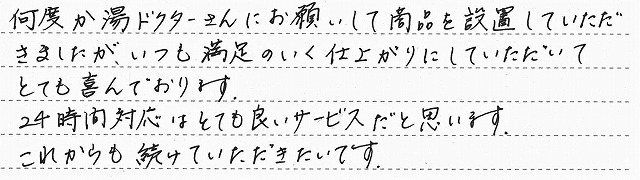 何度か湯ドクターさんにお願いして商品を設置していただ
きましたが、いつも満足のいく仕上がりにしていただいて
とても喜んでおります。
24時間対応はとても良いサービスだと思います。
これからも続けていただきたいです。